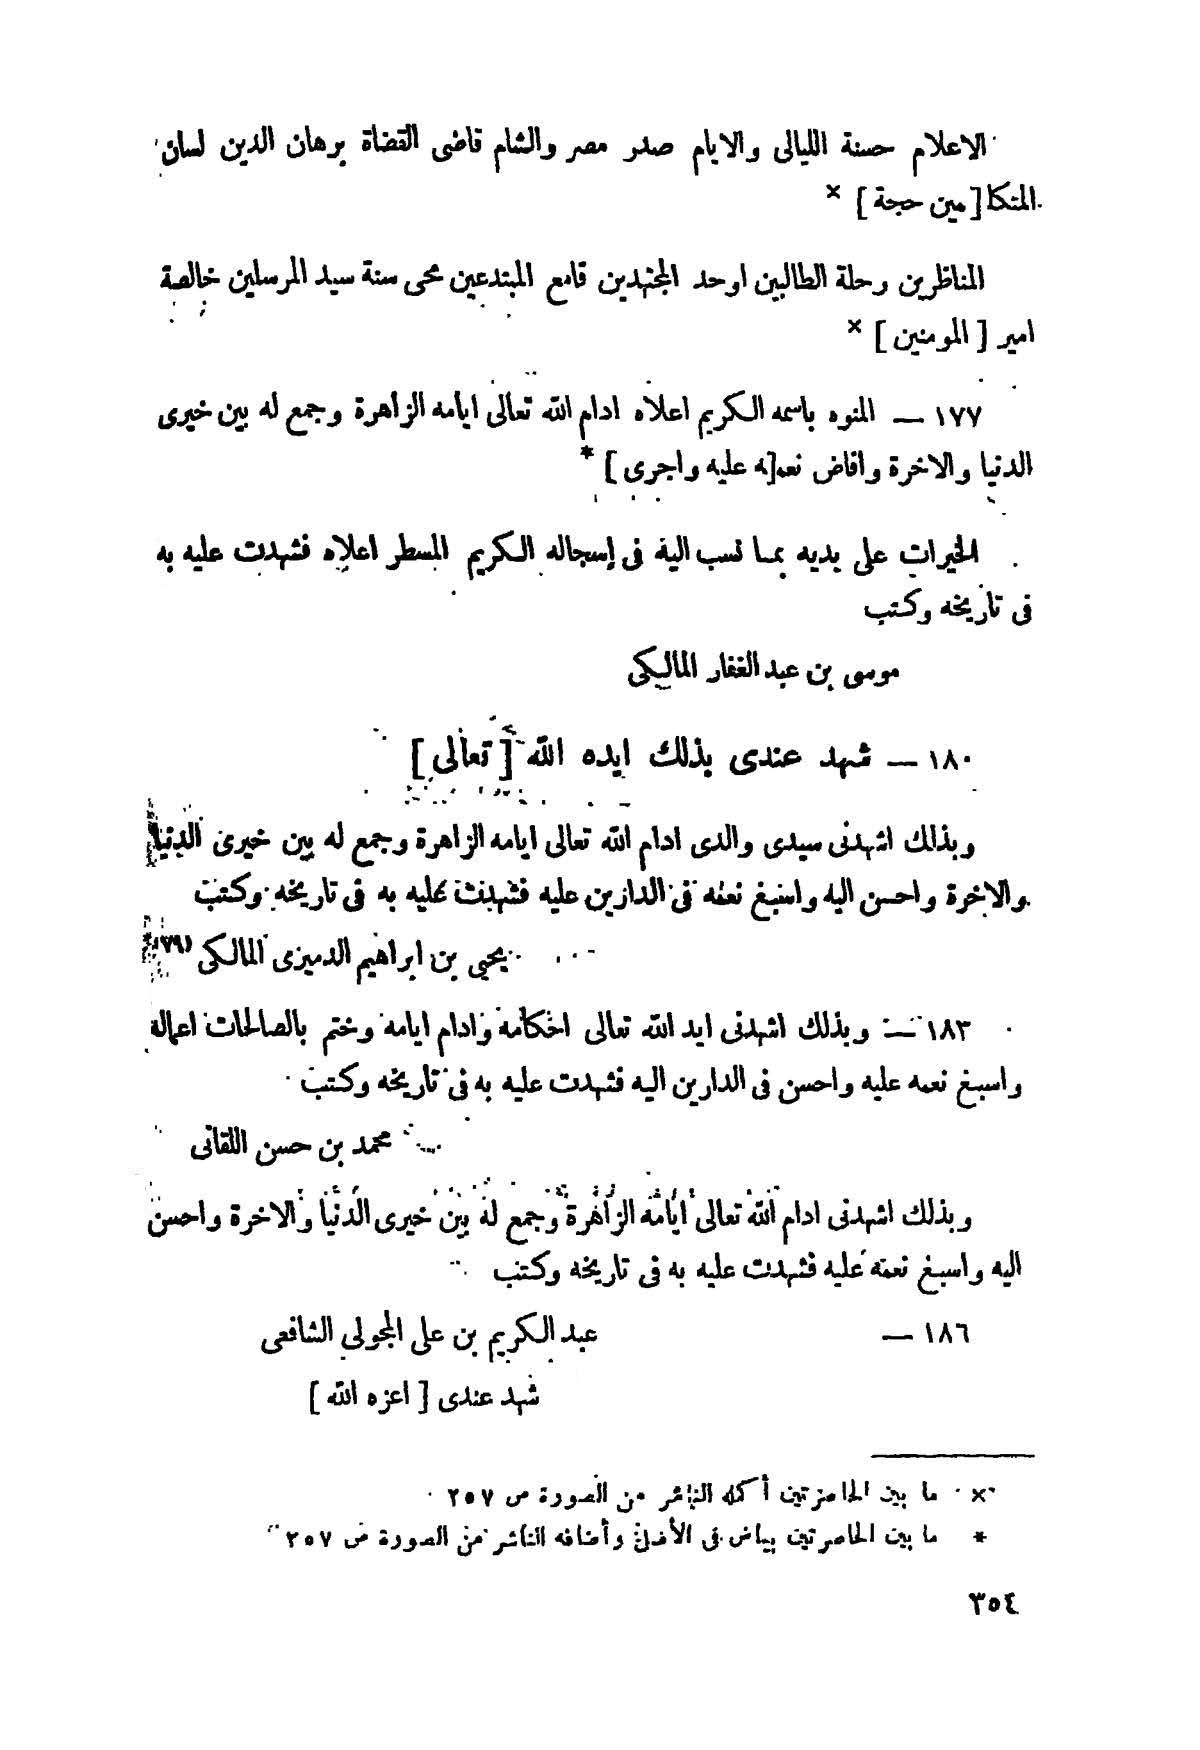 الاعلام حسنة الليالى والايام صدر مصر والشام قاضى القضاة برهان الدين لسان
المتكا[مين حجة ] ×
المناظرين رحلة الطالبين اوحد المجتهدين قامع المبتدعين محى سنة سيد المرسلين خالصة
امير [ المومنين ] ×
١٧٧ — المنوه باسمه الكريم اعلاه ادام الله تعالى ايامه الزاهرة وجمع له بين خيرى
الدنيا والاخرة وافاض نعمـ[ـه عليه واجرى ] *
الخيرات على يديه بما نسب اليه فى إسجاله الكريم المسطر اعلاه فشهدت عليه به
فى تاريخه وكتب
موسى بن عبد الغفار المالكى
١٨٠ — شهد عندى بذلك ايده الله [ تعالى ]
وبذلك اشهدنى سيدى والدى ادام الله تعالى ايامه الزاهرة وجمع له بين خيرى الدنيا
والاخرة واحسن اليه واسبغ نعمه فى الدارين عليه فشهدت عليه به فى تاريخه وكتب
يحيى بن ابراهيم الدميرى المالكى (٧٩)*
١٨٣ — وبذلك اشهدنى ايد الله تعالى احكامه وادام ايامه وختم بالصالحات اعماله
واسبغ نعمه عليه واحسن فى الدارين اليه فشهدت عليه به فى تاريخه وكتب
محمد بن حسن اللقانى
وبذلك اشهدنى ادام الله تعالى ايامه الزاهرة وجمع له بين خيرى الدنيا والاخرة واحسن
اليه واسبغ نعمه عليه فشهدت عليه به فى تاريخه وكتب
١٨٦ — عبد الكريم بن على المجولي الشافعى
شهد عندى [ اعزه الله ]
× ما بين الحاصرتين أكمله الناشر من الصورة ص ٢٥٧
* ما بين الحاصرتين بياض فى الأصل وأضافه الناشر من الصورة ص ٢٥٧
٣٥٤